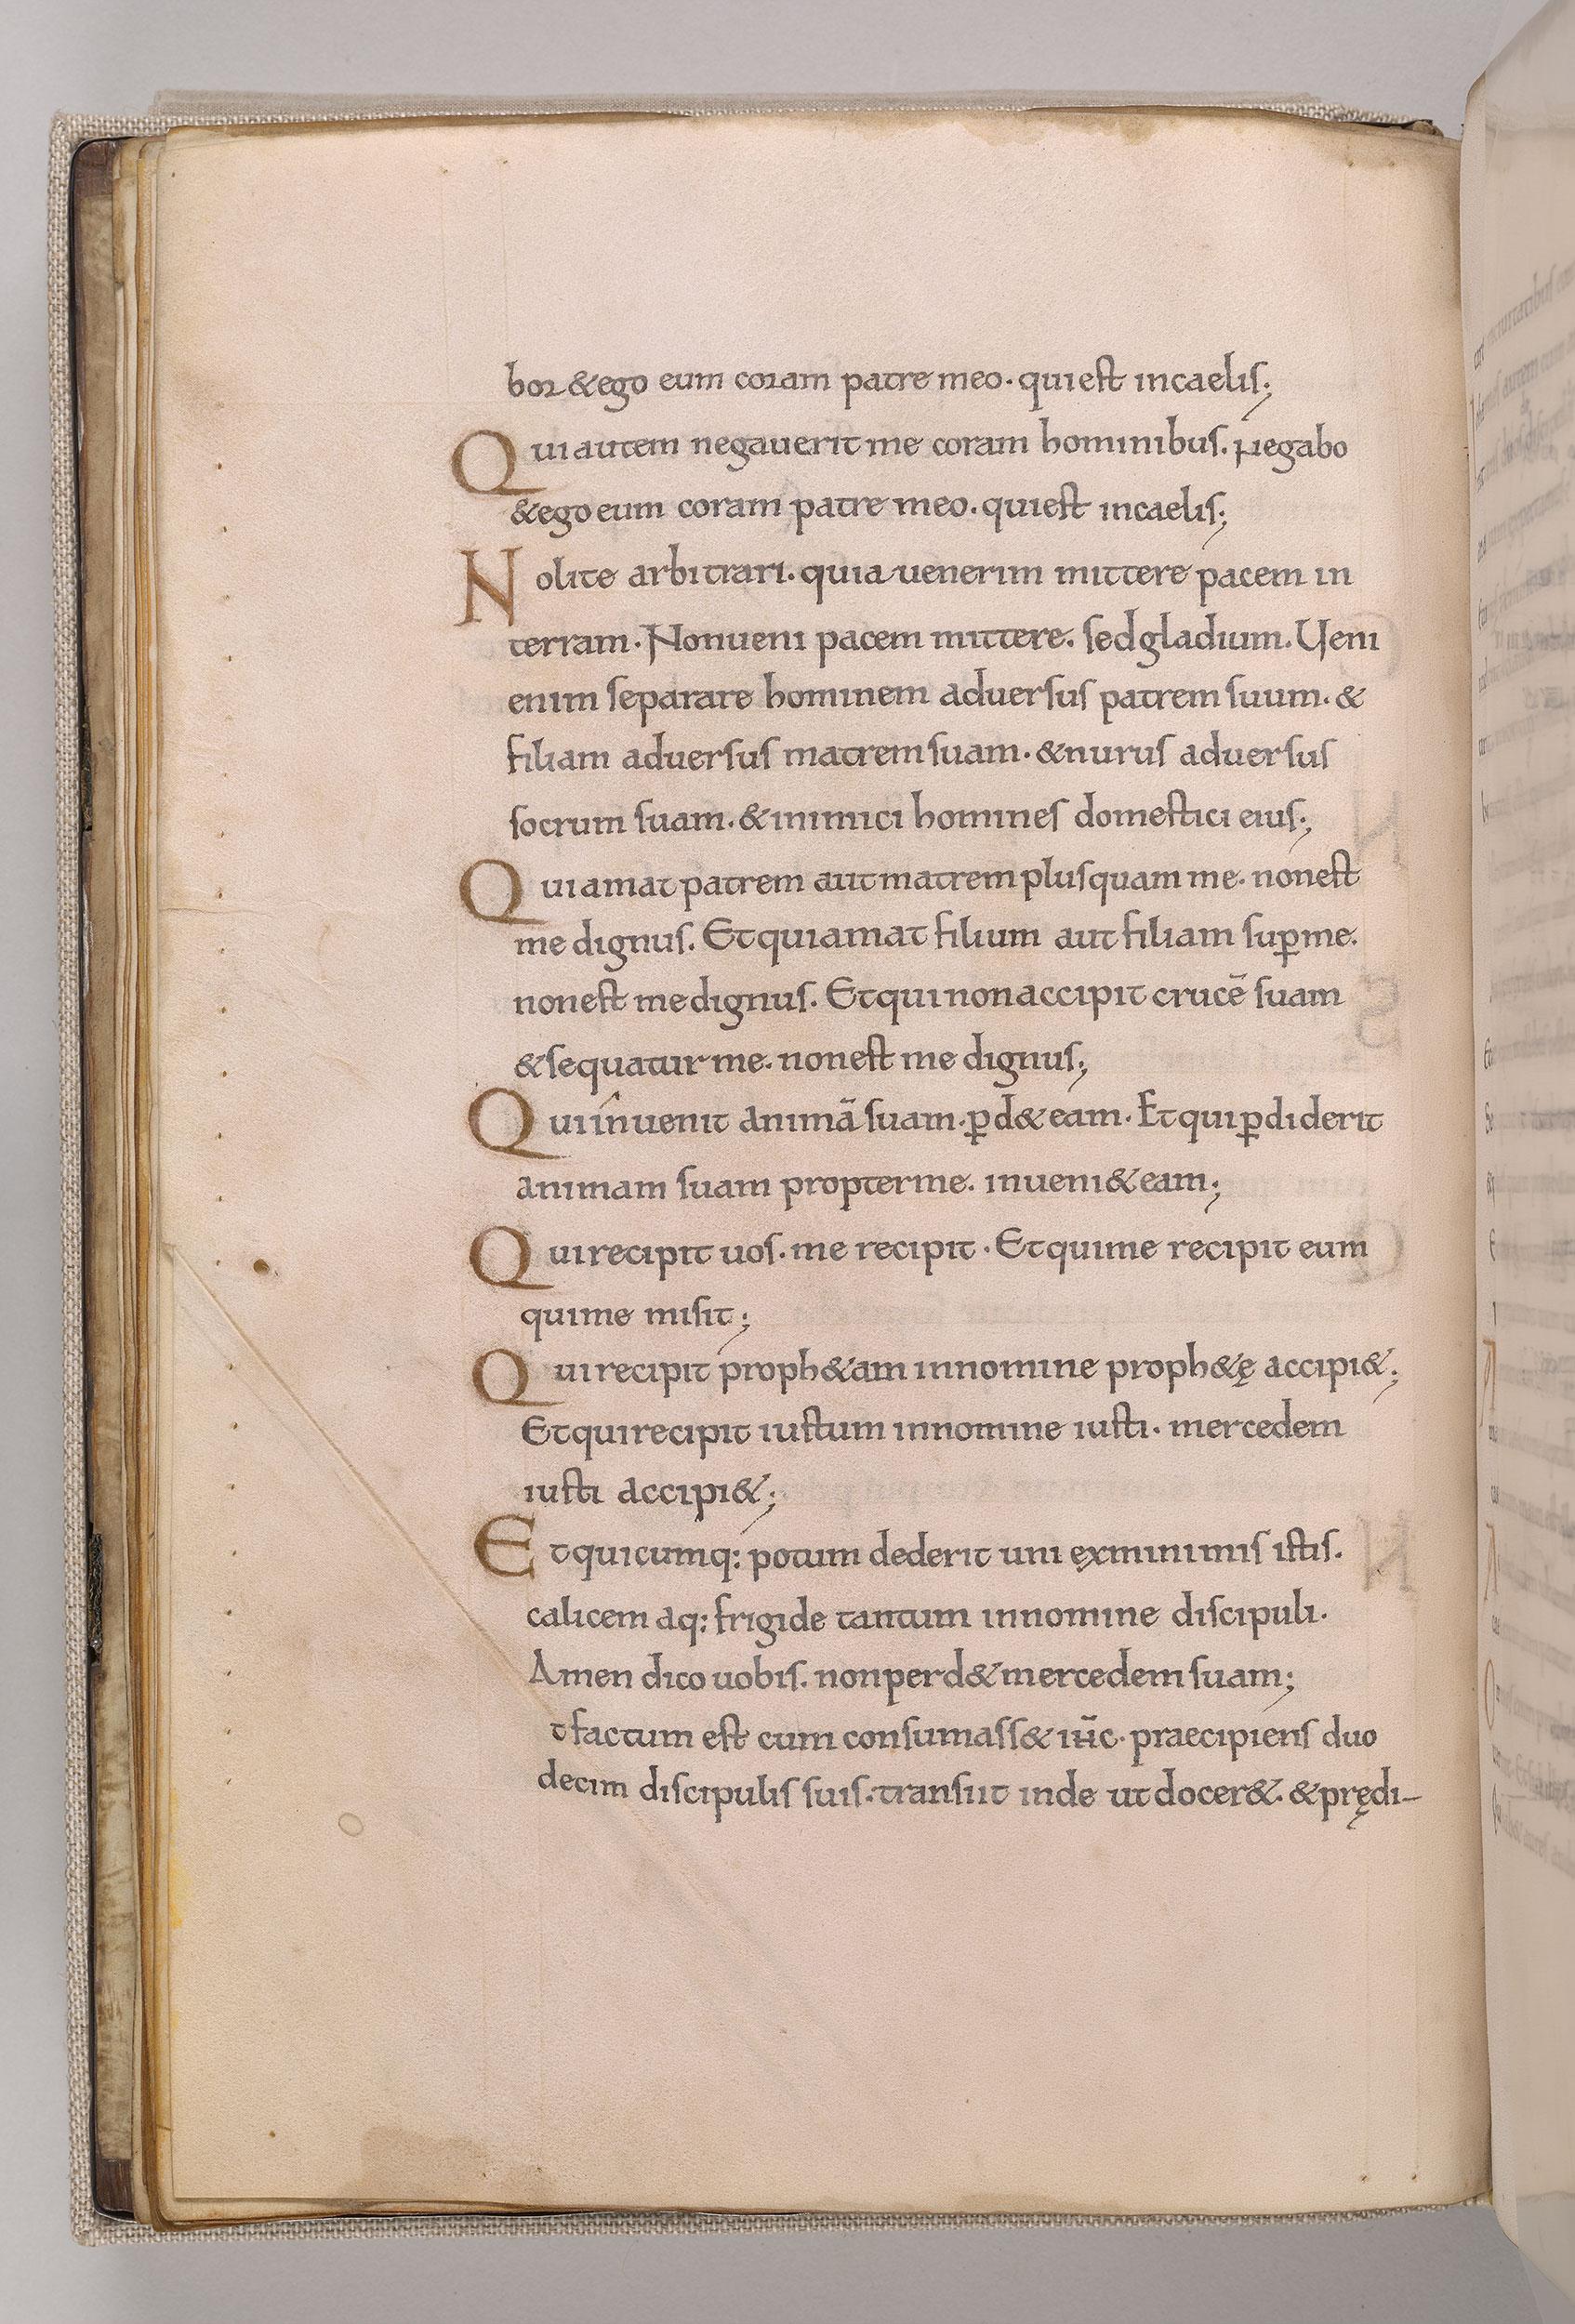 bor & ego eum coram patre meo. qui est in caelis;
Qui autem negauerit me coram hominibus. Negabo
& ego eum coram patre meo. qui est in caelis;
Nolite arbitrari. quia uenerim mittere pacem in
terram. Non ueni pacem mittere. sed gladium. Ueni
enim separare hominem aduersus patrem suum. &
filiam aduersus matrem suam. & nurus aduersus
socrum suam. & inimici homines domestici eius;
Qui amat patrem aut matrem plus quam me. non est
me dignus. Et qui amat filium aut filiam sup̲ me.
non est me dignus. Et qui non accipit crucē suam
& sequatur me. non est me dignus;
Qui inuenit animā suam. ꝑd& eam. Et qui ꝑdiderit
animam suam propter me. inueni& eam;
Qui recipit uos. me recipit. Et qui me recipit eum
qui me misit;
Qui recipit proph&am in nomine proph&ę accipi&;
Et qui recipit iustum in nomine iusti. mercedem
iusti accipi&;
Et quicumq: potum dederit uni ex minimis istis.
calicem aq: frigide tantum in nomine discipuli.
Amen dico uobis. non perd& mercedem suam;
t factum est cum consumass& praecipiens duo
decim discipulis suis. transiit inde ut docer&. & prędi-